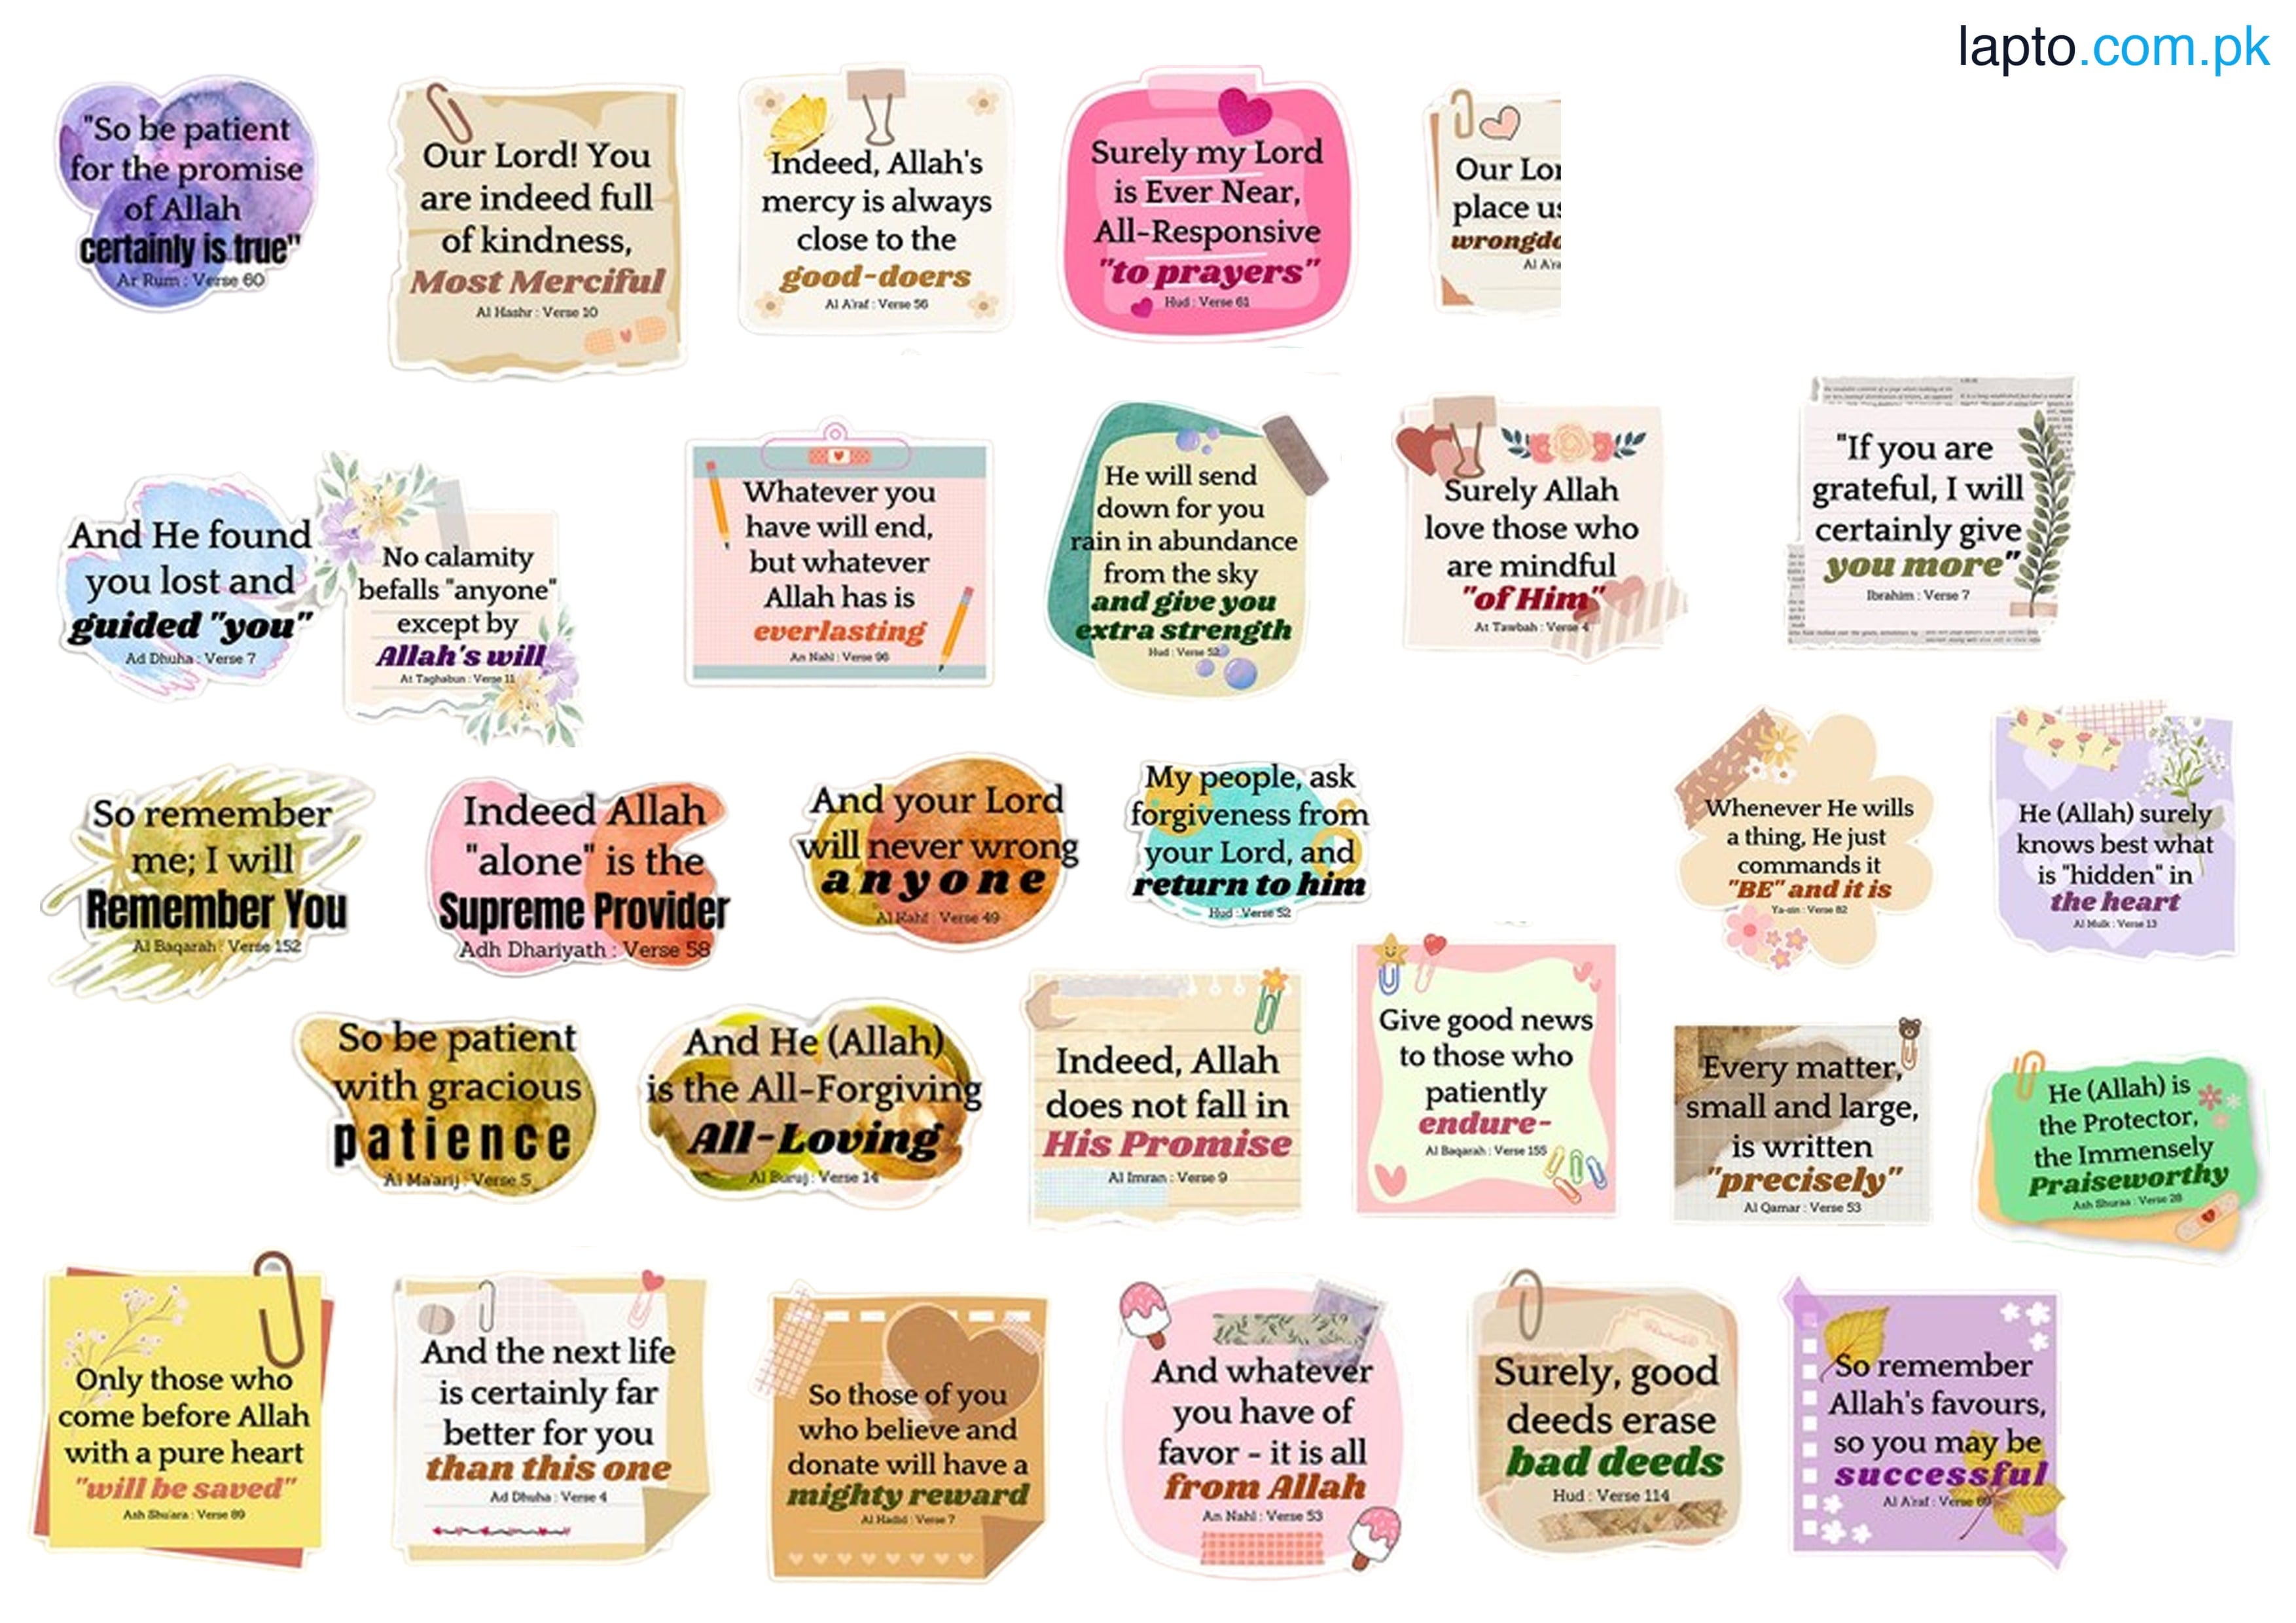 lapto.com.pk
"So be patient
for the promise
of Allah
certainly is true"
Ar Rum : Verse 60
Our Lord! You
are indeed full
of kindness,
Most Merciful
Al Hashr : Verse 10
Indeed, Allah's
mercy is always
close to the
good-doers
Al A'raf : Verse 56
Surely my Lord
is Ever Near,
All-Responsive
"to prayers"
Hud : Verse 61
Our Lor
place us
wrongdo
Al A'ra
And He found
you lost and
guided "you"
Ad Dhuha : Verse 7
No calamity
befalls "anyone"
except by
Allah's will
At Taghabun : Verse 11
Whatever you
have will end,
but whatever
Allah has is
everlasting
An Nahl : Verse 96
He will send
down for you
rain in abundance
from the sky
and give you
extra strength
Hud : Verse 52
Surely Allah
love those who
are mindful
"of Him"
At Tawbah : Verse 4
"If you are
grateful, I will
certainly give
you more"
Ibrahim : Verse 7
So remember
me; I will
Remember You
Al Baqarah : Verse 152
Indeed Allah
"alone" is the
Supreme Provider
Adh Dhariyath : Verse 58
And your Lord
will never wrong
anyone
Al Kahf : Verse 49
My people, ask
forgiveness from
your Lord, and
return to him
Hud : Verse 52
Whenever He wills
a thing, He just
commands it
"BE" and it is
Ya-sin : Verse 82
He (Allah) surely
knows best what
is "hidden" in
the heart
Al Mulk : Verse 13
So be patient
with gracious
patience
Al Ma'arij : Verse 5
And He (Allah)
is the All-Forgiving
All-Loving
Al Buruj : Verse 14
Indeed, Allah
does not fall in
His Promise
Al Imran : Verse 9
Give good news
to those who
patiently
endure-
Al Baqarah : Verse 155
Every matter,
small and large,
is written
"precisely"
Al Qamar : Verse 53
He (Allah) is
the Protector,
the Immensely
Praiseworthy
Ash Shuraa : Verse 28
Only those who
come before Allah
with a pure heart
"will be saved"
Ash Shu'ara : Verse 89
And the next life
is certainly far
better for you
than this one
Ad Dhuha : Verse 4
So those of you
who believe and
donate will have a
mighty reward
Al Hadid : Verse 7
And whatever
you have of
favor - it is all
from Allah
An Nahl : Verse 53
Surely, good
deeds erase
bad deeds
Hud : Verse 114
So remember
Allah's favours,
so you may be
successful
Al A'raf : Verse 69